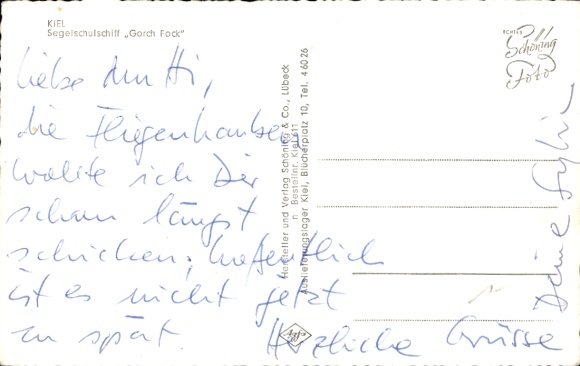 KIEL
Segelschulschiff „Gorch Fock“
ECHTES
Schöning
Foto
Liebe Mutti,
die Fliegenhauben
wollte ich Dir
schon längst
schicken; hoffentlich
ist es nicht jetzt
zu spät. Herzliche Grüsse
Deine Sylvia
Hersteller und Verlag Schöning & Co., Lübeck
n. Bestellnr. Kiel 611
Auslieferungslager Kiel, Bücherplatz 10, Tel. 4 60 26
Agfa